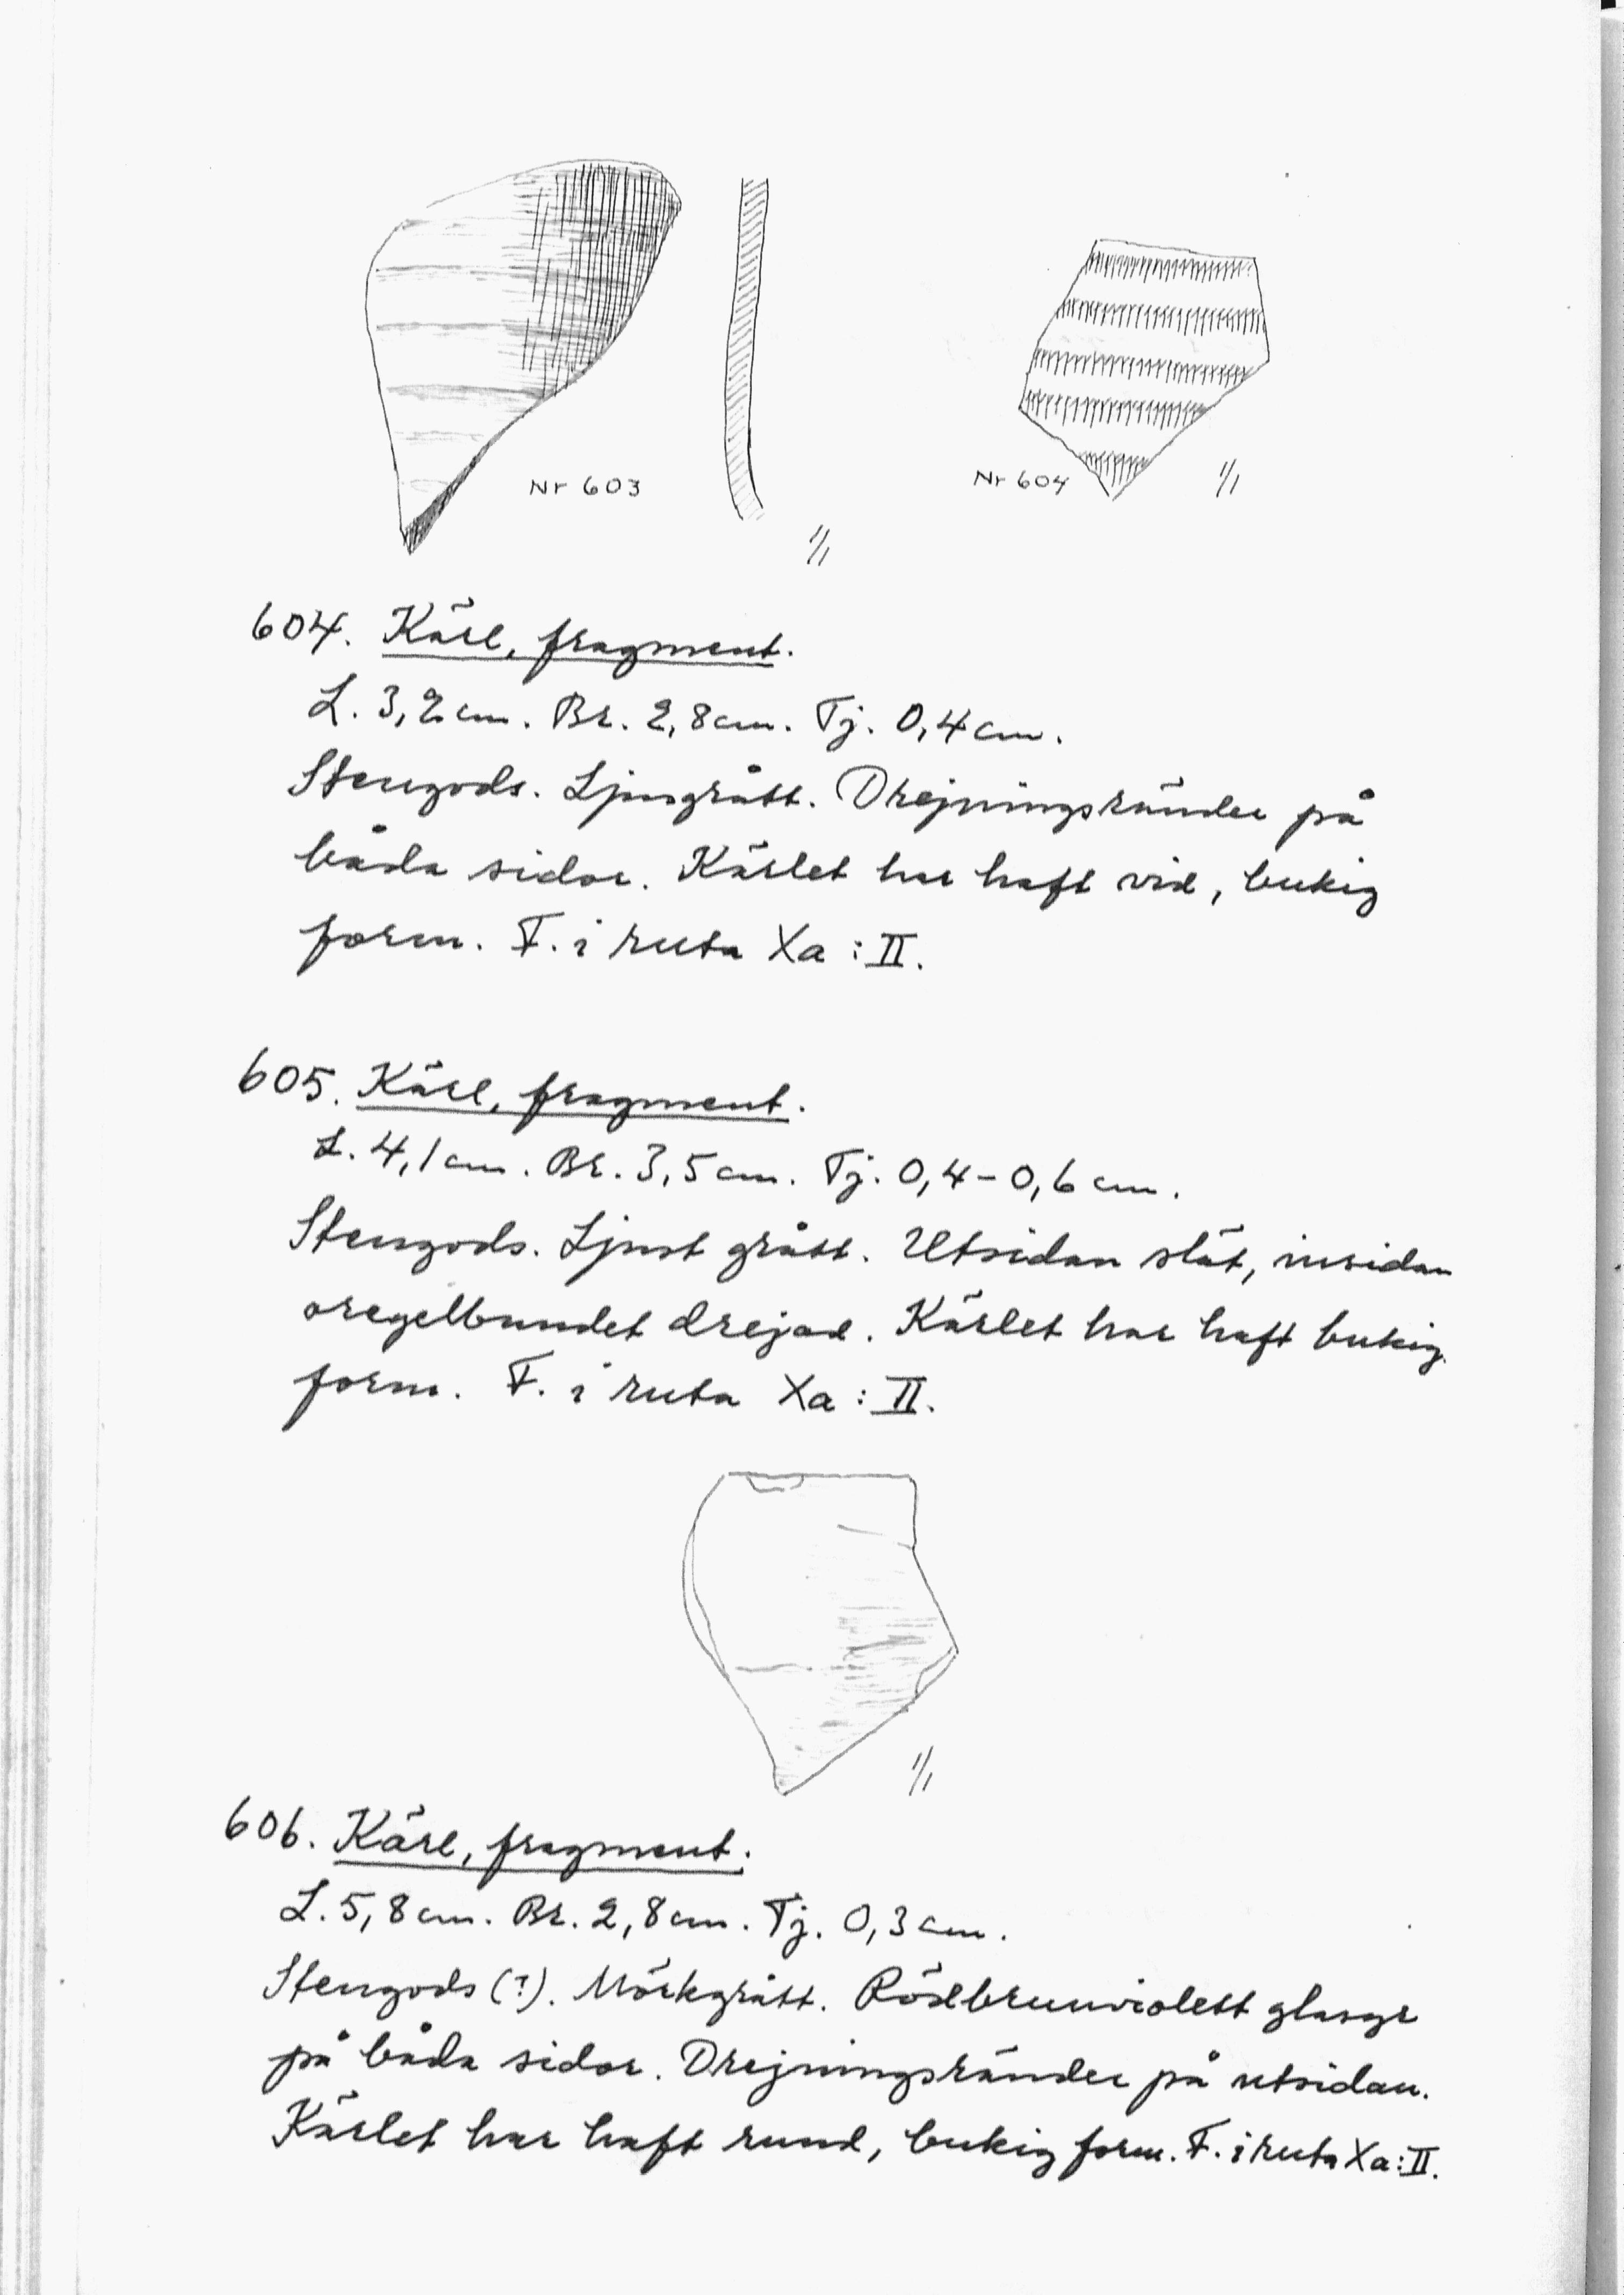 Nr 603
1/1
Nr 604
1/1
604. Kärl, fragment.
L. 3,2 cm. Br. 2,8 cm. Tj. 0,4 cm.
Stengods. Ljusgrått. Drejningsränder på
båda sidor. Kärlet har haft vid, bukig
form. F. i ruta Xa:II.
605. Kärl, fragment.
L. 4,1 cm. Br. 3,5 cm. Tj. 0,4-0,6 cm.
Stengods. Ljust grått. Utsidan slät, insidan
oregelbundet drejad. Kärlet har haft bukig
form. F. i ruta Xa:II.
1/1
606. Kärl, fragment.
L. 5,8 cm. Br. 2,8 cm. Tj. 0,3 cm.
Stengods (?). Mörkgrått. Rödbrunviolett glasyr
på båda sidor. Drejningsränder på utsidan.
Kärlet har haft rund, bukig form. F. i ruta Xa:II.